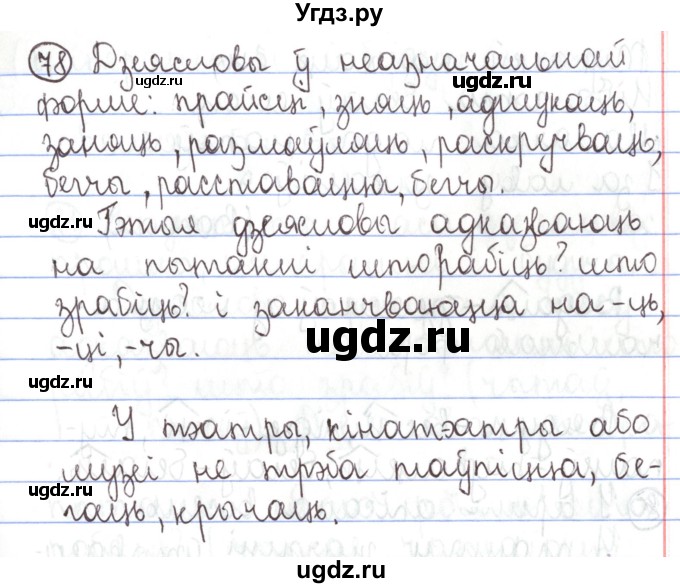 Угдз.ру
78 Дзеясловы ў неазначальнай
форме: прайсці, зняць, адшукаць,
заняць, размаўляць, раскручваць,
бегчы, расставацца, бегчы.
Гэтыя дзеясловы адказваюць
на пытанні што рабіць? што
зрабіць? і заканчваюцца на -ць,
-ці, -чы.
У тэатры, кінатэатры або
музеі не трэба таўпіцца, бе-
гаць, крычаць.
ugdz.ru
ugdz.ru
ugdz.ru
ugdz.ru
ugdz.ru
ugdz.ru
ugdz.ru
ugdz.ru